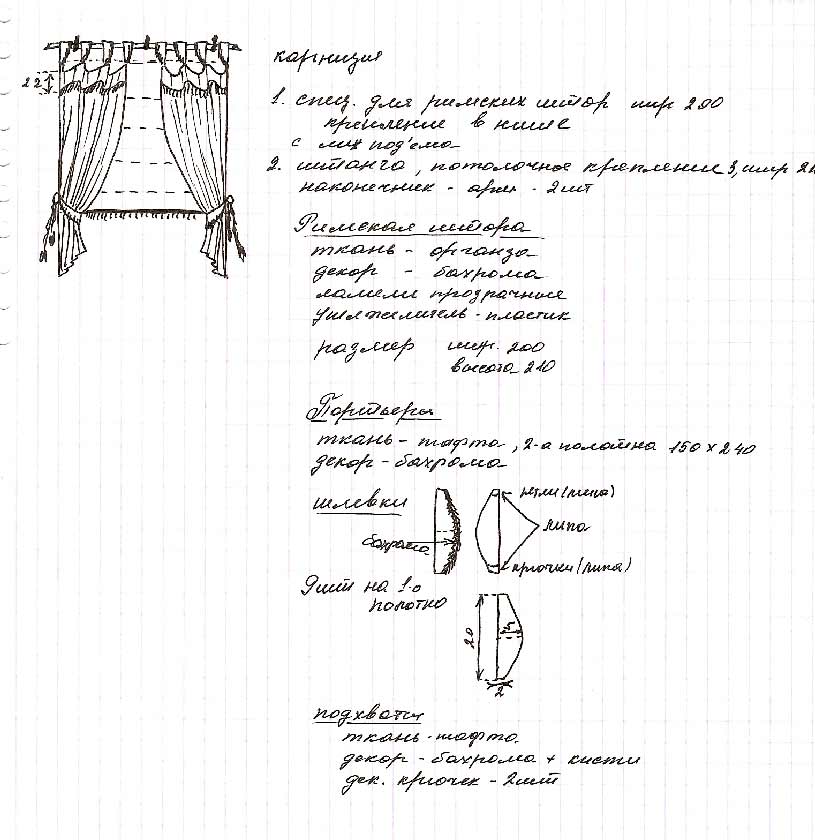 карнизы
1. спец. для римских штор шир 200
крепление в нише
с мех под'ема
2. штанга, потолочное крепление 3, шир 24
наконечник - орех - 2шт
22
Римская штора
ткань - органза
декор - бахрома
ламели прозрачные
утяжелитель - пластик
размер шир. 200
высота 210
Портьеры
ткань - тафта, 2-а полотна 150 x 240
декор - бахрома
шлевки
петли (липа)
липа
бахрома
крючки (липа)
9шт на 1-о
полотно
20
2
подхваты
ткань - тафта.
декор - бахрома + кисти
дек. крючек - 2шт